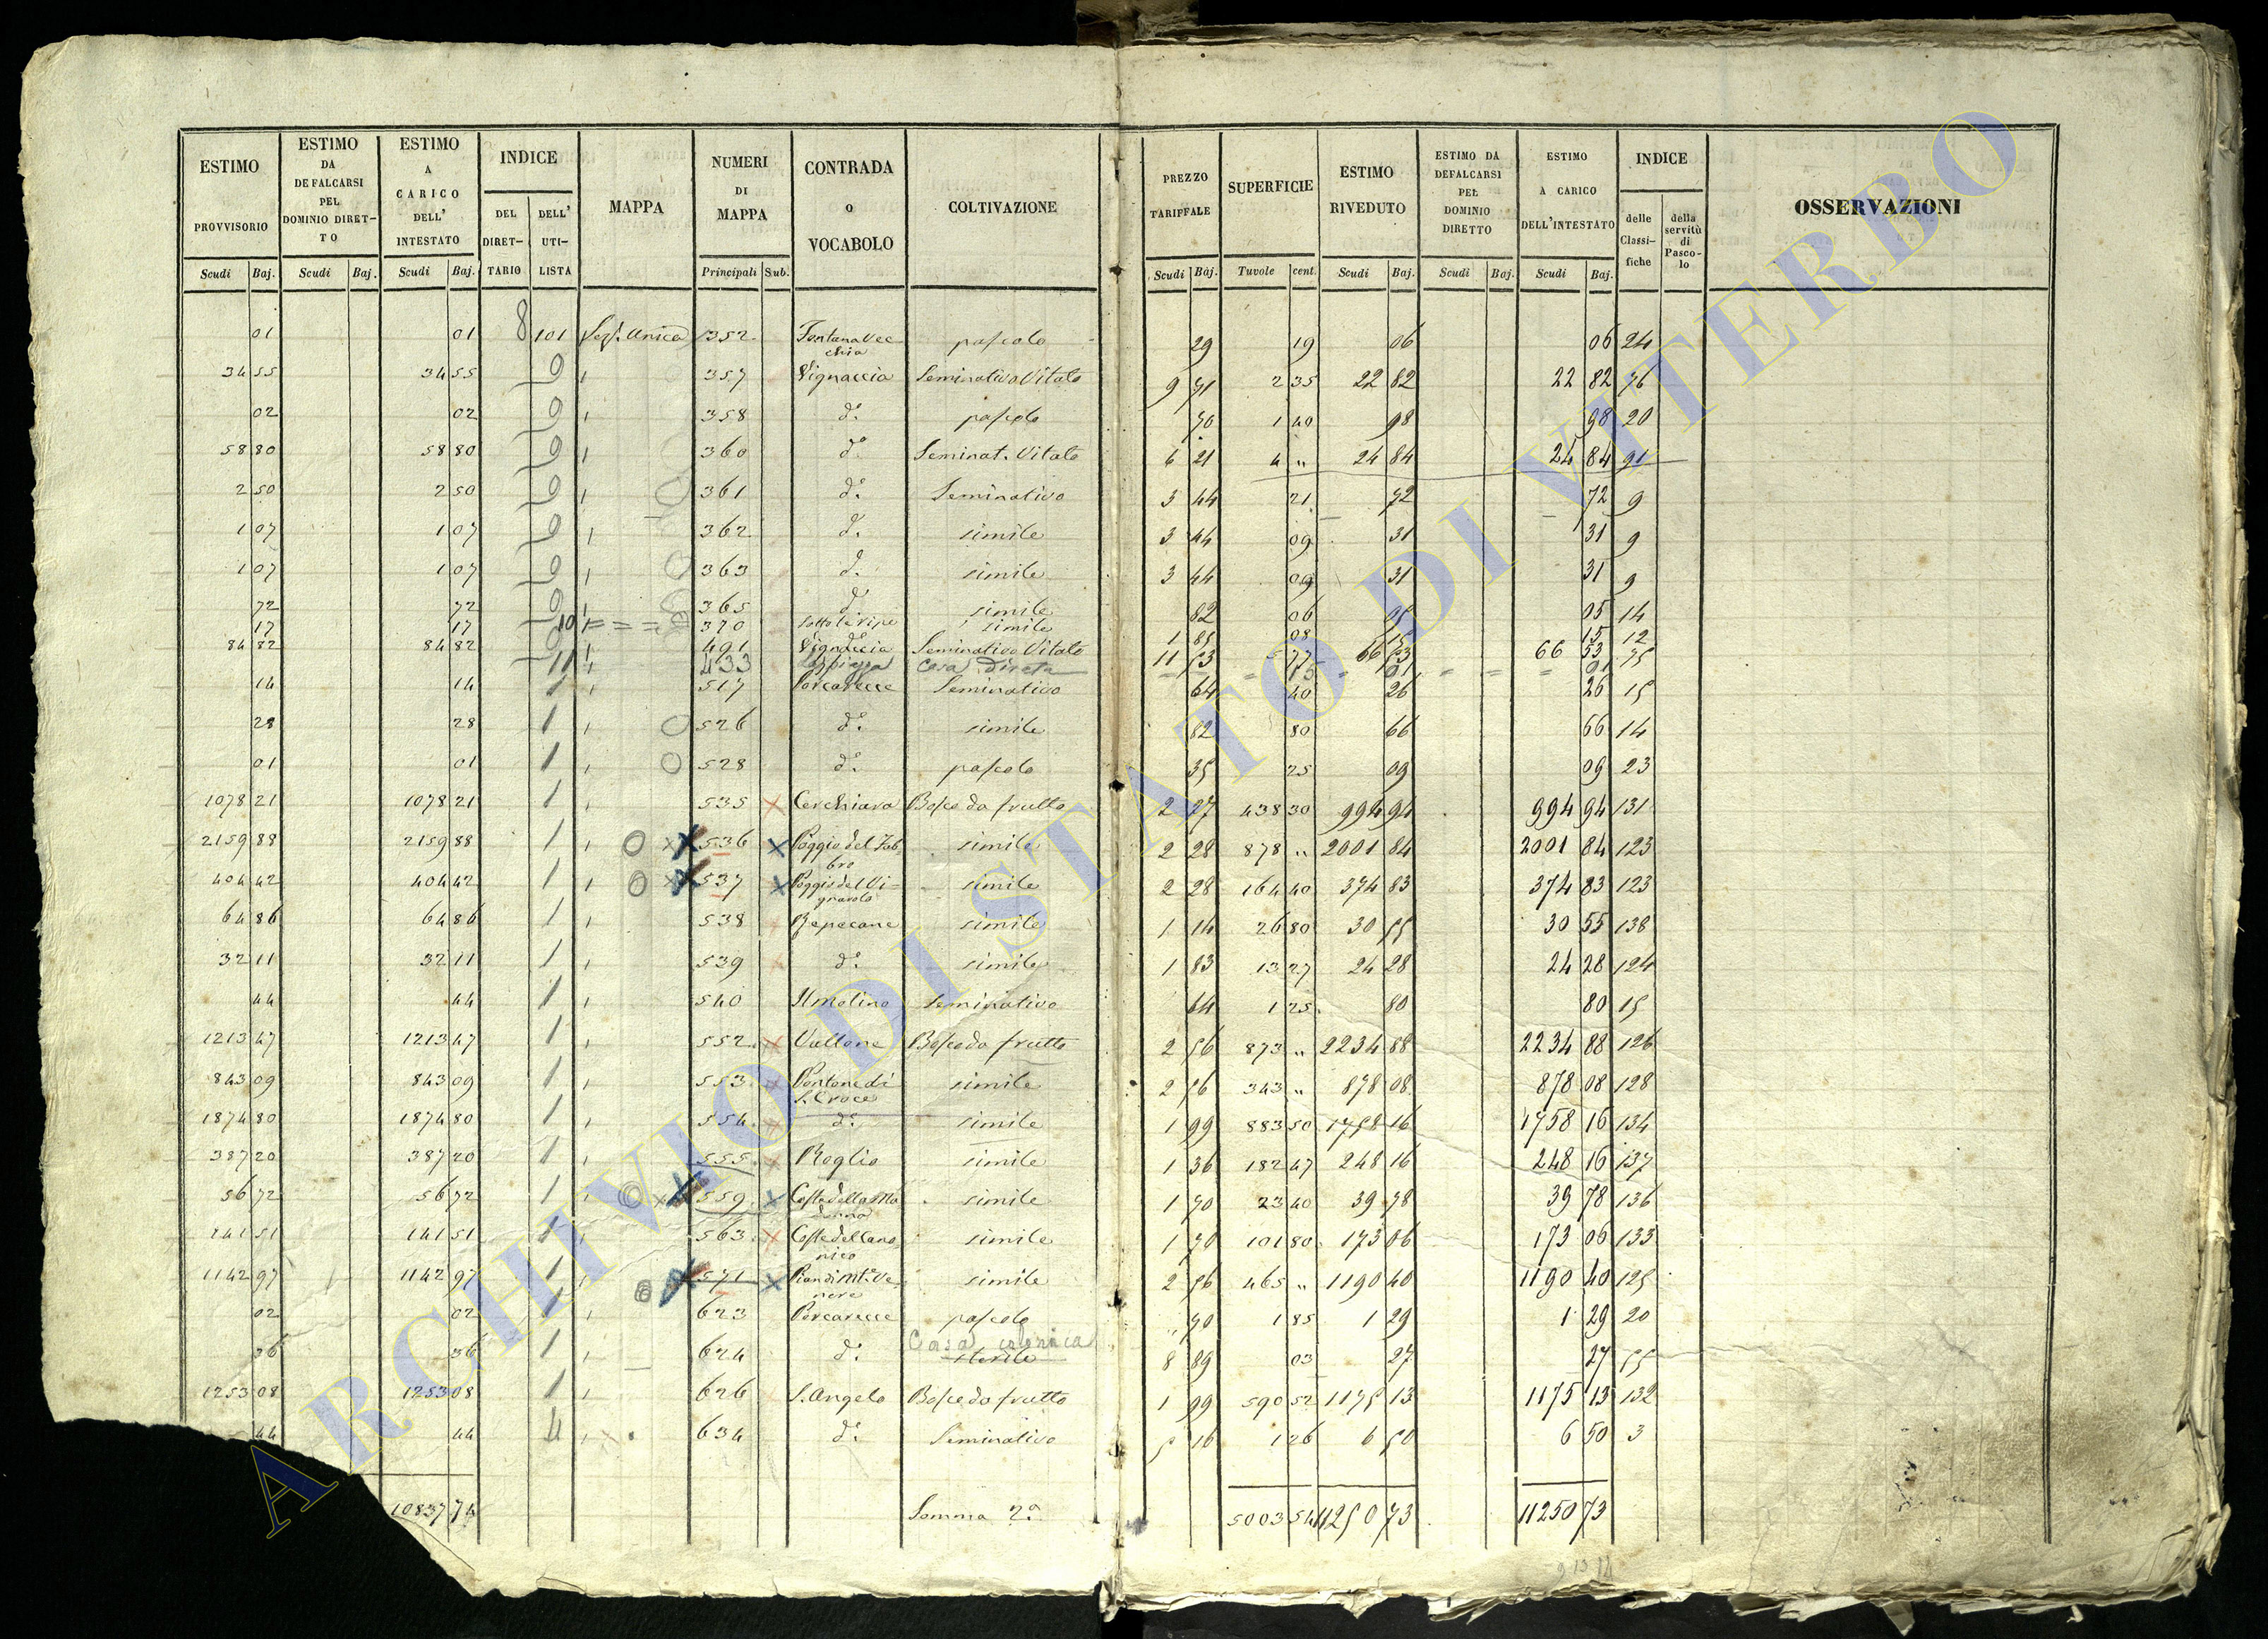 ESTIMO PROVVISORIO
ESTIMO DA DEFALCARSI PEL DOMINIO DIRETTO
ESTIMO A CARICO DELL' INTESTATO
INDICE
DEL DIRETTARIO
DELL' UTILISTA
MAPPA
NUMERI DI MAPPA
CONTRADA O VOCABOLO
COLTIVAZIONE
PREZZO TARIFFALE
SUPERFICIE
ESTIMO RIVEDUTO
ESTIMO DA DEFALCARSI PEL DOMINIO DIRETTO
ESTIMO A CARICO DELL'INTESTATO
INDICE
delle Classifiche
della servitù di Pascolo
OSSERVAZIONI
Scudi Baj. Scudi Baj. Scudi Baj. Principali Sub. Scudi Baj. Tavole cent. Scudi Baj. Scudi Baj. Scudi Baj.
01 01 8 101 Sez. Unica 352 Fontana Vecchia pascolo 29 19 06 06 24
34 55 34 55 357 Vignaccia Seminativo Vitato 9 71 2 35 22 82 22 82 76
02 02 358 d.o pascolo 70 1 40 98 98 20
58 80 58 80 360 d.o Seminat. Vitato 6 21 4 " 24 84 24 84 91
2 50 2 50 361 d.o Seminativo 3 44 21 72 72 9
1 07 1 07 362 d.o simile 3 44 09 31 31 9
1 07 1 07 363 d.o simile 3 44 09 31 31 9
72 72 365 d.o simile 82 06 05 05 14
17 17 10 370 Sotto le ripe simile 1 85 08 15 15 12
84 82 84 82 491 Vignaccia Seminativo Vitato 11 53 5 77 66 53 66 53 75
11 433 Casa diruta 15 01 01
14 14 1 517 Porcarecce Seminativo 64 40 26 26 15
28 28 1 526 d.o simile 82 80 66 66 14
01 01 1 528 d.o pascolo 35 25 09 09 23
1078 21 1078 21 1 535 Cerchiara Bosco da frutto 2 27 438 30 994 94 994 94 131
2159 88 2159 88 1 536 Poggio del Fabbro simile 2 28 878 " 2001 84 2001 84 123
404 42 404 42 1 537 Poggio del Vignarolo simile 2 28 164 40 374 83 374 83 123
64 86 64 86 1 538 Repecane simile 1 14 26 80 30 55 30 55 138
32 11 32 11 1 539 d.o simile 1 83 13 27 24 28 24 28 124
44 44 1 540 Il Molino Seminativo 64 1 25 80 80 15
1213 47 1213 47 1 552 Vallone Bosco da frutto 2 56 873 " 2234 88 2234 88 126
843 09 843 09 1 553 Pontone di S. Croce simile 2 56 343 " 878 08 878 08 128
1874 80 1874 80 1 554 d.o simile 1 99 883 50 1758 16 1758 16 134
387 20 387 20 1 555 Roglio simile 1 36 182 47 248 16 248 16 137
56 72 56 72 1 559 Costa della Madonna simile 1 70 23 40 39 78 39 78 136
141 51 141 51 1 563 Coste del Canonico simile 1 70 101 80 173 06 173 06 133
1142 97 1142 97 1 571 Pian di Mte Venere simile 2 56 465 " 1190 40 1190 40 125
02 02 1 623 Porcarecce pascolo " 70 1 85 1 29 1 29 20
36 36 1 624 d.o sterile Casa colonica 8 89 03 27 27 55
1253 08 1253 08 1 626 S. Angelo Bosco da frutto 1 99 590 52 1175 13 1175 13 132
44 44 4 634 d.o Seminativo 5 16 1 26 6 50 6 50 3
10837 74 Somma 2.a 5003 54 11250 73 11250 73
ARCHIVIO DI STATO DI VITERBO